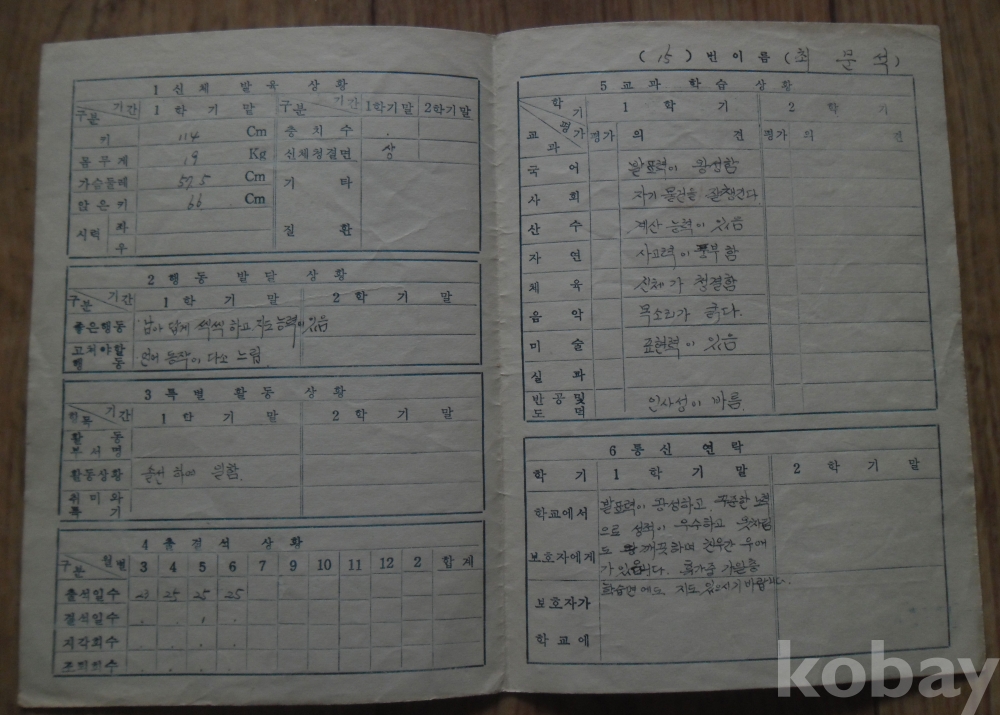 1 신체 발육 상황
구분 기간 1학기말 구분 기간 1학기말 2학기말
키 114 Cm 충치수
몸무게 19 Kg 신체청결면 상
가슴둘레 57.5 Cm 기타
앉은키 66 Cm
시력 좌 질환
우
2 행동 발달 상황
구분 기간 1학기말 2학기말
좋은행동 남아 답게 씩씩 하고 지도 능력이 있음
고쳐야할 행동 언어 동작이 다소 느림.
3 특별 활동 상황
기간 1학기말 2학기말
활동 부서명
활동상황 솔선 하여 일함.
취미와 특기
4 출결석 상황
구분 월별 3 4 5 6 7 9 10 11 12 2 합계
출석일수 23 25 25 25
결석일수
지각회수
조퇴회수
(15) 번 이름 (최문석)
5 교과 학습 상황
학기 1학기 2학기
교과 평가 평가 의견 평가 의견
국어 발표력이 왕성함
사회 자기 물건을 잘챙긴다.
산수 계산 능력이 있음
자연 사고력이 풍부함
체육 신체가 청결함
음악 목소리가 굵다.
미술 표현력이 있음
실과
반공및 도덕 인사성이 바름.
6 통신 연락
학기 1학기말 2학기말
학교에서 발표력이 왕성하고 꾸준한 노력
으로 성적이 우수하고 옷차림
보호자에게 도 깨끗하며 친우간 우애
가 있읍니다. 휴가중 가정
학습면에도 지도 있으시기 바랍니다.
보호자가
학교에
kobay